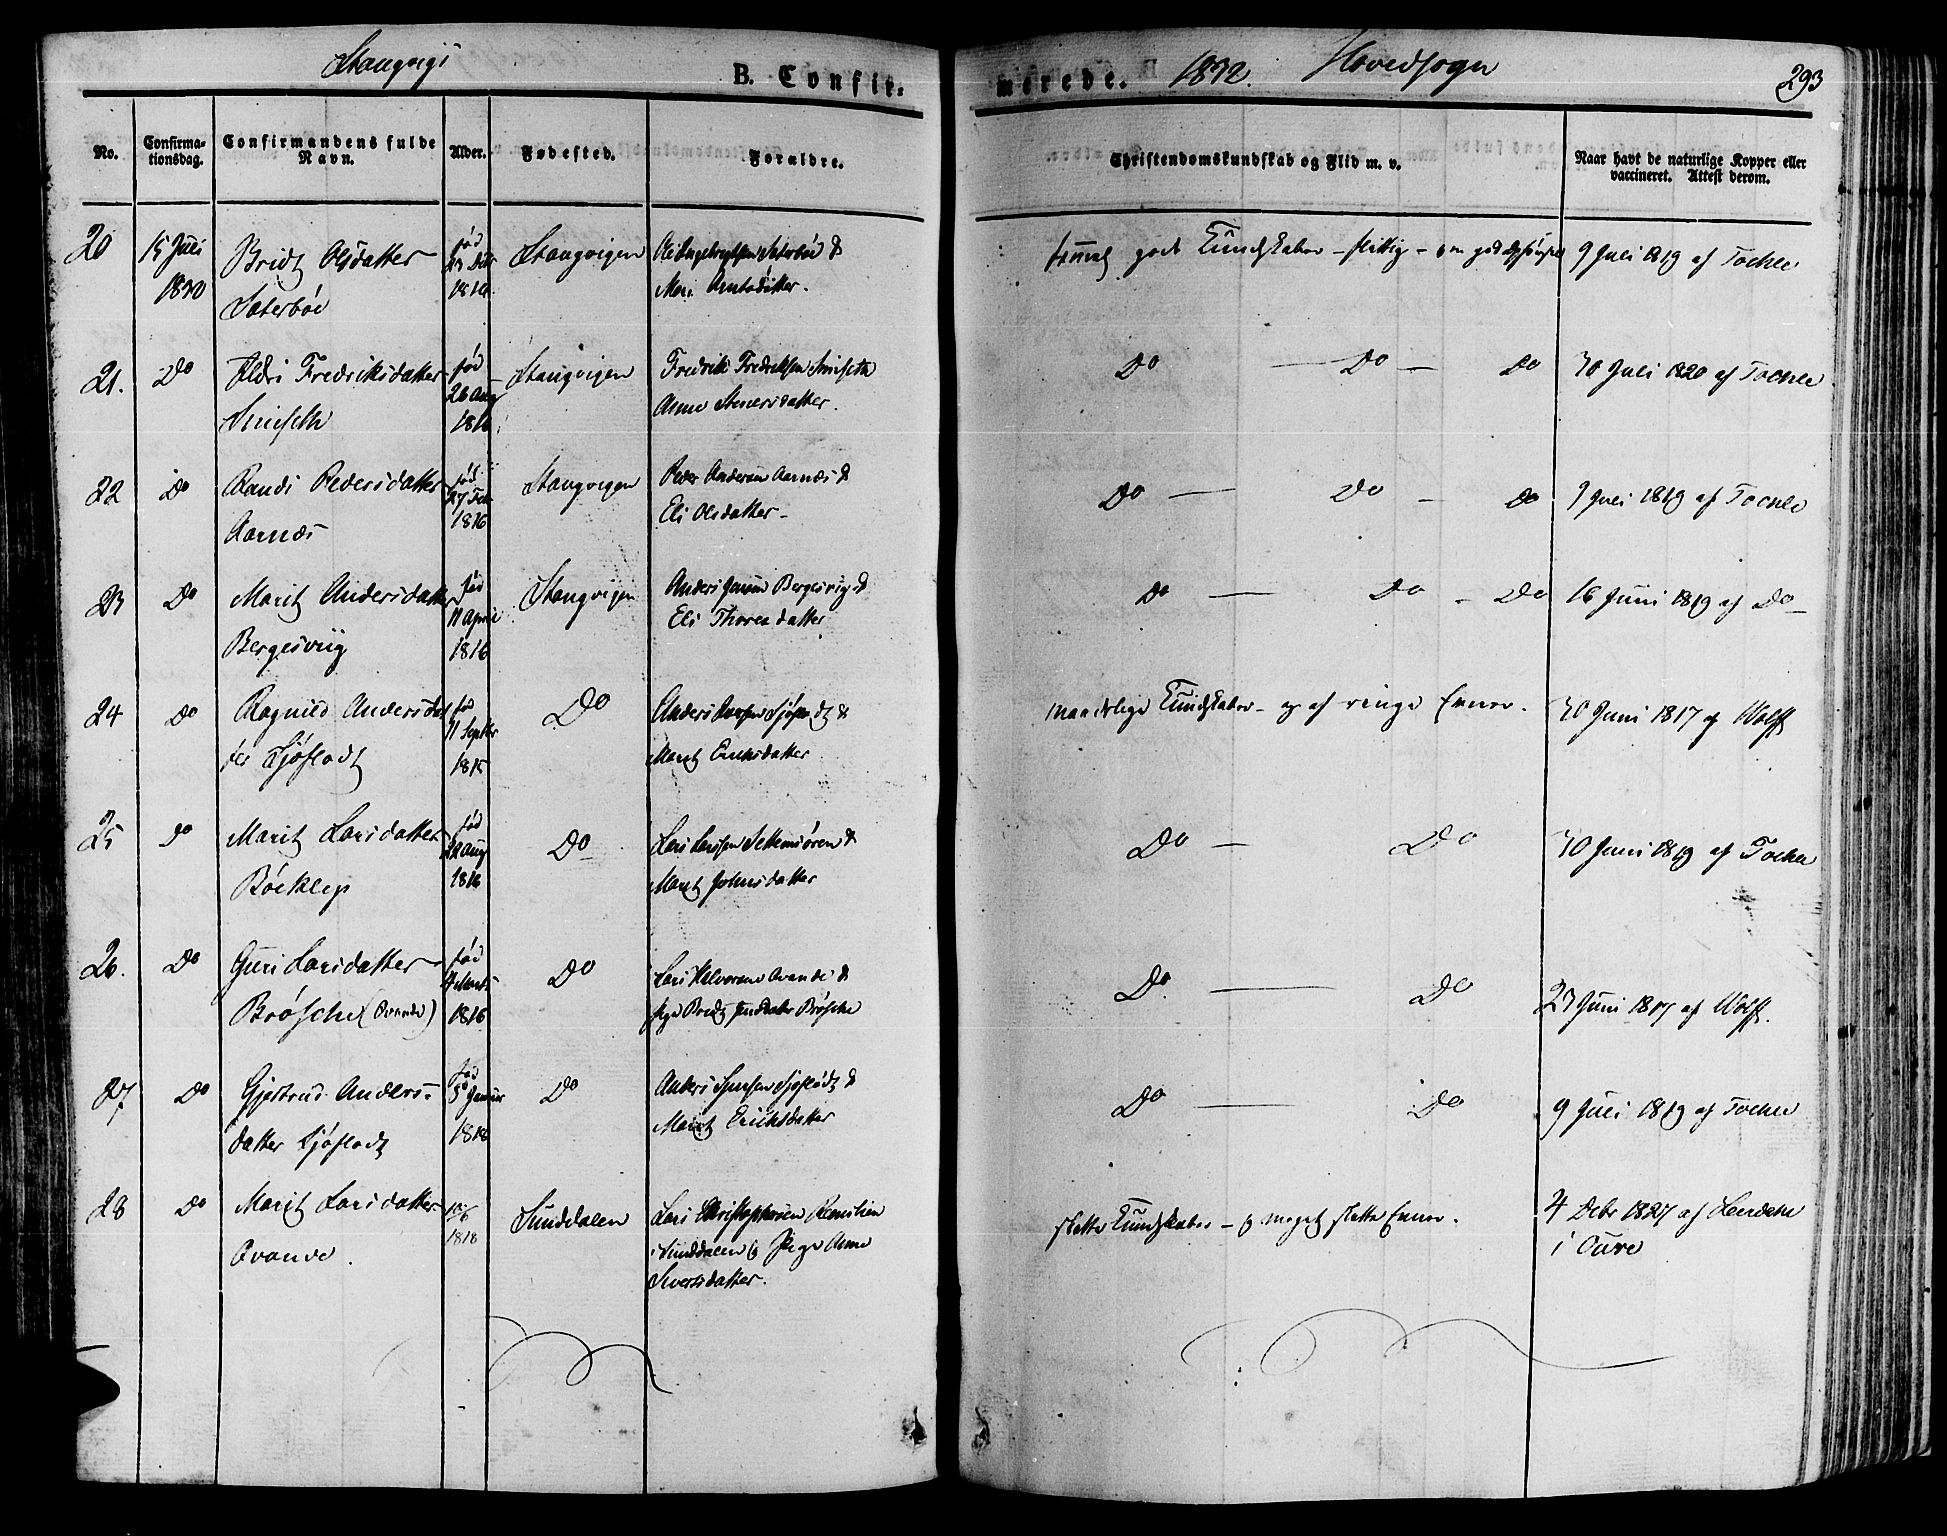 Stangvigs
B. Confir-
merede. 1832. Hovedsogn
293
No.
Confirma-
tionsdag.
Confirmandens fulde
Navn.
Alder.
Fødested.
Forældre.
Christendomskundskab og Flid m. v.
Naar havt de naturlige Kopper eller
vaccineret. Attest derom.
20
15 Juli
Bridt Olsdatter
Sæterbøe
fød
Stangvigen
Mari
9 Juli 1819 af Tochle
21.
Do
Fredriksdatter
fød
26 Aug
1816
Stangvigen
Fredrik Fredriksen
Anne Stenersdatter.
Do — Do — Do
30 Juli 1820 af Tochle
22
Do
Randi Pedersdatter
Aarnæs
fød
27 Feb
1816
Stangvigen
Peder Andersen Aarnæs &
Eli Olsdatter
Do — Do — Do
9 Juli 1819 af Tochle
23
Do
Marit Andersdatter
Bergesviig
fød
11 April
1816
Stangvigen
Anders Bergesvig &
Eli Thoresdatter
Do — Do - Do
16 Juni 1819 af Do
24
Do
Ragnild Andersdat
ter Sjøflodt
fød
11 Septbr
1815
Do
Anders &
Marit Eriksdatter
maadelige Kundskaber - og af ringe Evner.
30 Juni 1817 af Wolff
25
Do
Marit Larsdatter
Böeklep
fød
22 Aug
1816
Do
Lars Larssen Settemsören &
Marit Johnsdatter
Do — Do
30 Juni 1819 af Tochle
26.
Do
Guri Larsdatter
Brøsche (Ovande)
fød
4 Marts
1816
Do
Lars Halvorsen Ovande &
Pige Bridt Brøsche
Do. — Do
23 Juni 1817 af Wolff.
27
Do
Gjertrud Anders-
datter Sjøflodt
fød
5 Januar
1818
Do
Anders Sjøflodt &
Marit Eriksdatter
Do — Do
9 Juli 1819 af Tochle
28
Do
Marit Larsdatter
Ovande.
1818
Sunddalen
Lars Christophersen
i Sunddalen og Pige Anne
Siversdatter.
slette Kundskaber - og meget slette Evner.
4 Debr 1827 af
i Oure